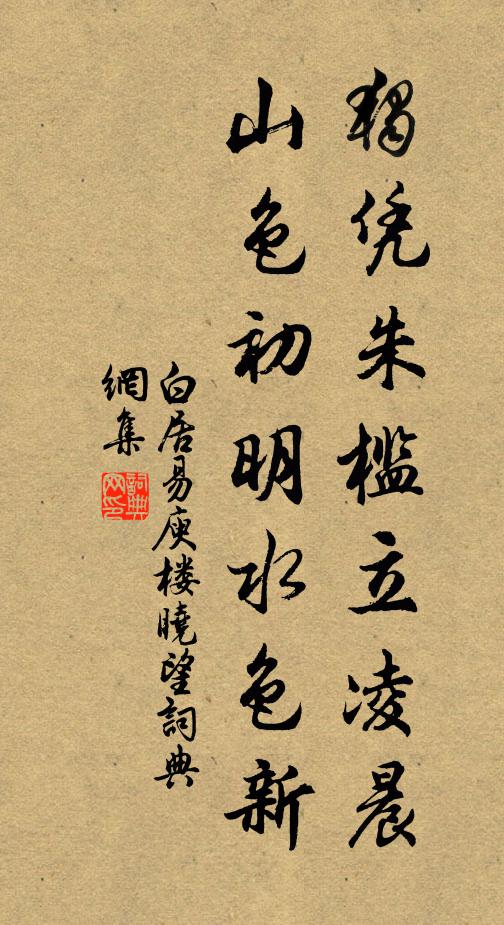 獨凭朱槛立凌晨
山色初明水色新
白居易庾楼曉望詞典
網集
詞典
网印